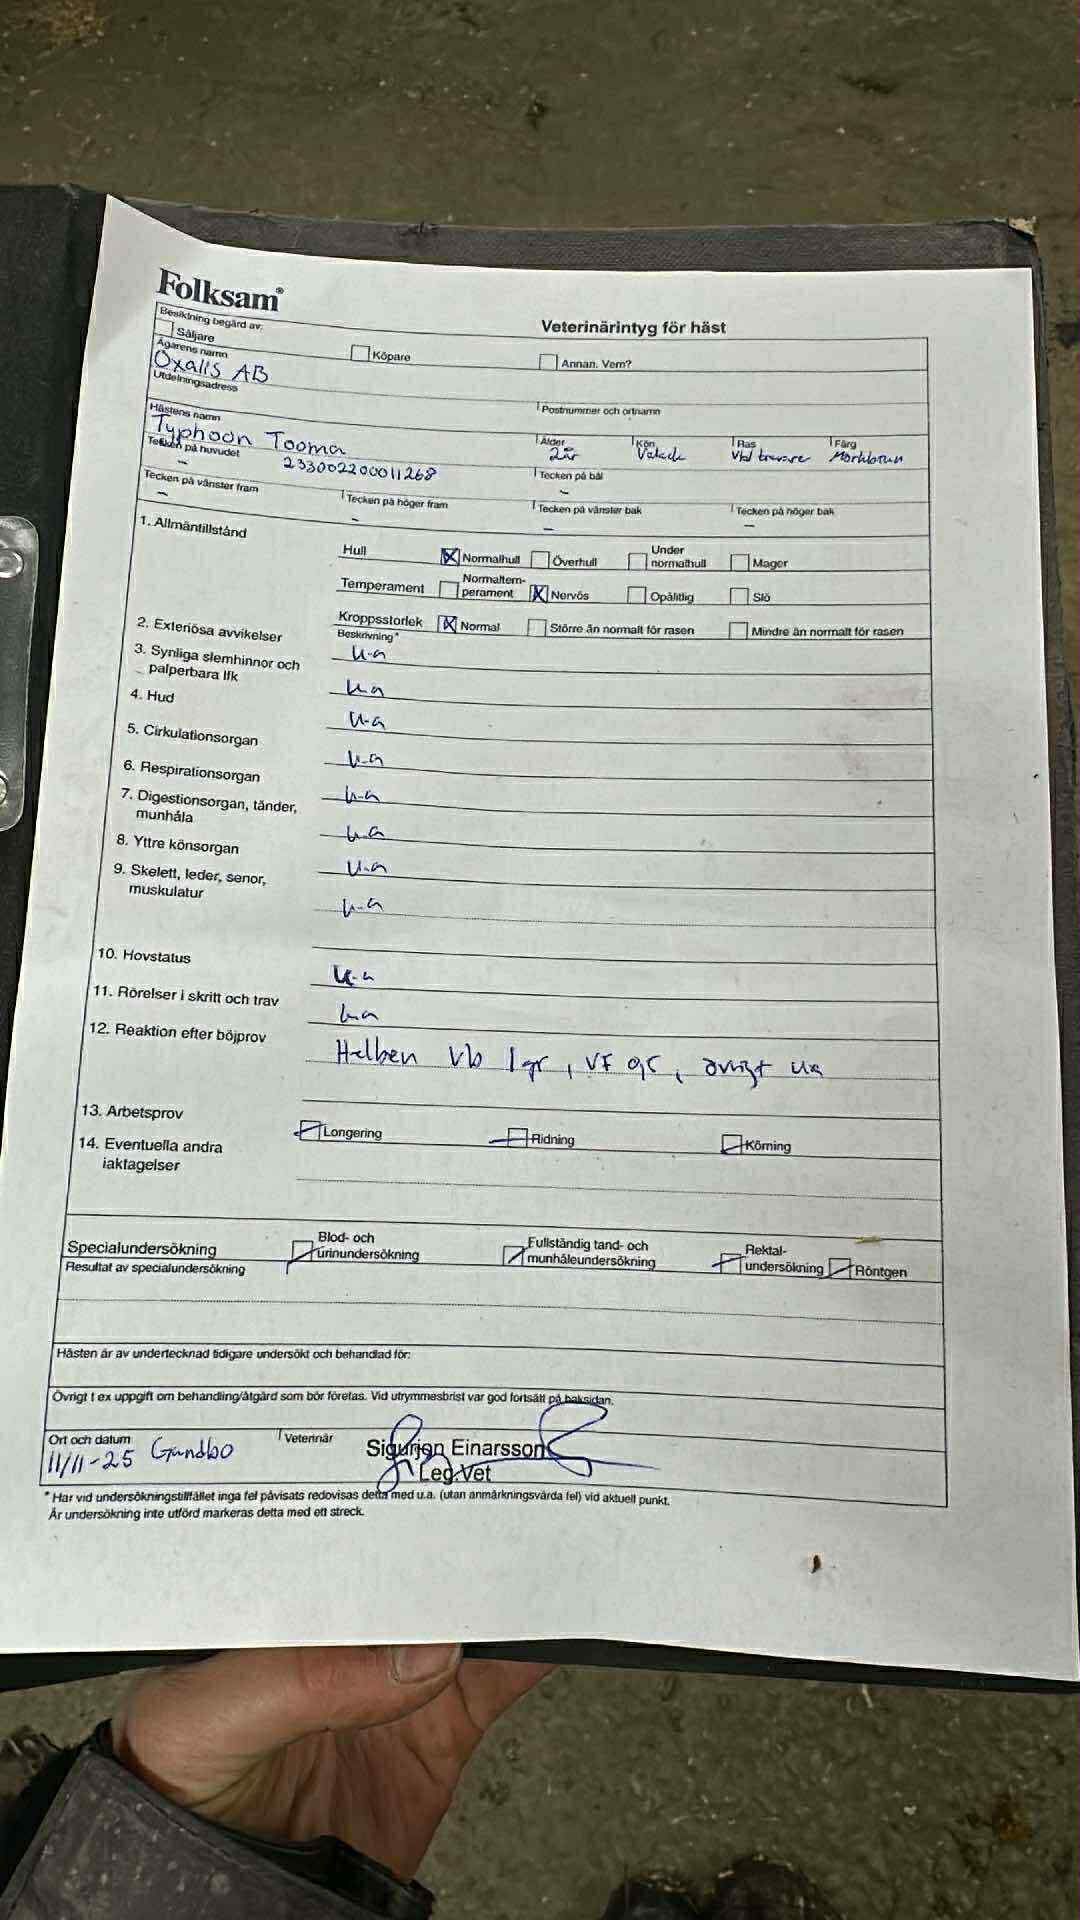 Folksam®
Veterinärintyg för häst
Besiktning begärd av:
Säljare
Köpare
Annan. Vem?
Ägarens namn
Oxalis AB
Utdelningsadress
Postnummer och ortnamn
Hästens namn
Typhoon Tooma
Ålder
2år
Kön
Valack
Ras
Vbl travare
Färg
Mörkbrun
Tecken på huvudet
-
233002200011268
Tecken på bål
-
Tecken på vänster fram
-
Tecken på höger fram
-
Tecken på vänster bak
-
Tecken på höger bak
-
1. Allmäntillstånd
Hull
Normalhull
Överhull
Under normalhull
Mager
Temperament
Normaltem-
perament
Nervös
Opålitlig
Slö
Kroppsstorlek
Normal
Större än normalt för rasen
Mindre än normalt för rasen
Beskrivning*
2. Exteriösa avvikelser
u-a
3. Synliga slemhinnor och
palperbara lfk
ua
4. Hud
u-a
5. Cirkulationsorgan
u-a
6. Respirationsorgan
u-a
7. Digestionsorgan, tänder,
munhåla
ua
8. Yttre könsorgan
u-a
9. Skelett, leder, senor,
muskulatur
u-a
10. Hovstatus
u-a
11. Rörelser i skritt och trav
ua
12. Reaktion efter böjprov
Helben vb 1gr, VF gr, övrigt ua
13. Arbetsprov
Longering
Ridning
Körning
14. Eventuella andra
iaktagelser
Specialundersökning
Blod- och
urinundersökning
Fullständig tand- och
munhåleundersökning
Rektal-
undersökning
Röntgen
Resultat av specialundersökning
Hästen är av undertecknad tidigare undersökt och behandlad för:
Övrigt t ex uppgift om behandling/åtgärd som bör företas. Vid utrymmesbrist var god fortsätt på baksidan.
Ort och datum
11/11-25 Gundbo
Veterinär
Sigurjon Einarsson
Leg.Vet
* Har vid undersökningstillfället inga fel påvisats redovisas detta med u.a. (utan anmärkningsvärda fel) vid aktuell punkt.
Är undersökning inte utförd markeras detta med ett streck.